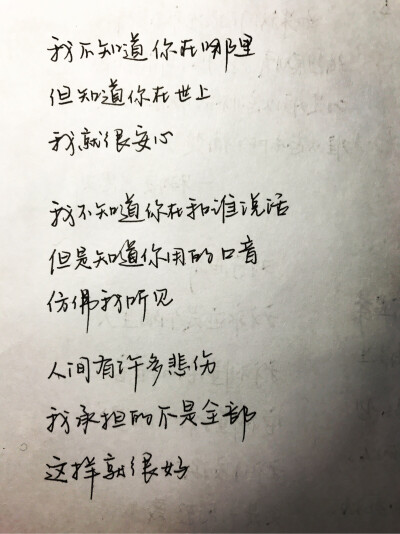 我不知道你在哪里
但知道你在世上
我就很安心
我不知道你在和谁说话
但是知道你用的口音
仿佛我听见
人间有许多悲伤
我承担的不是全部
这样就很好